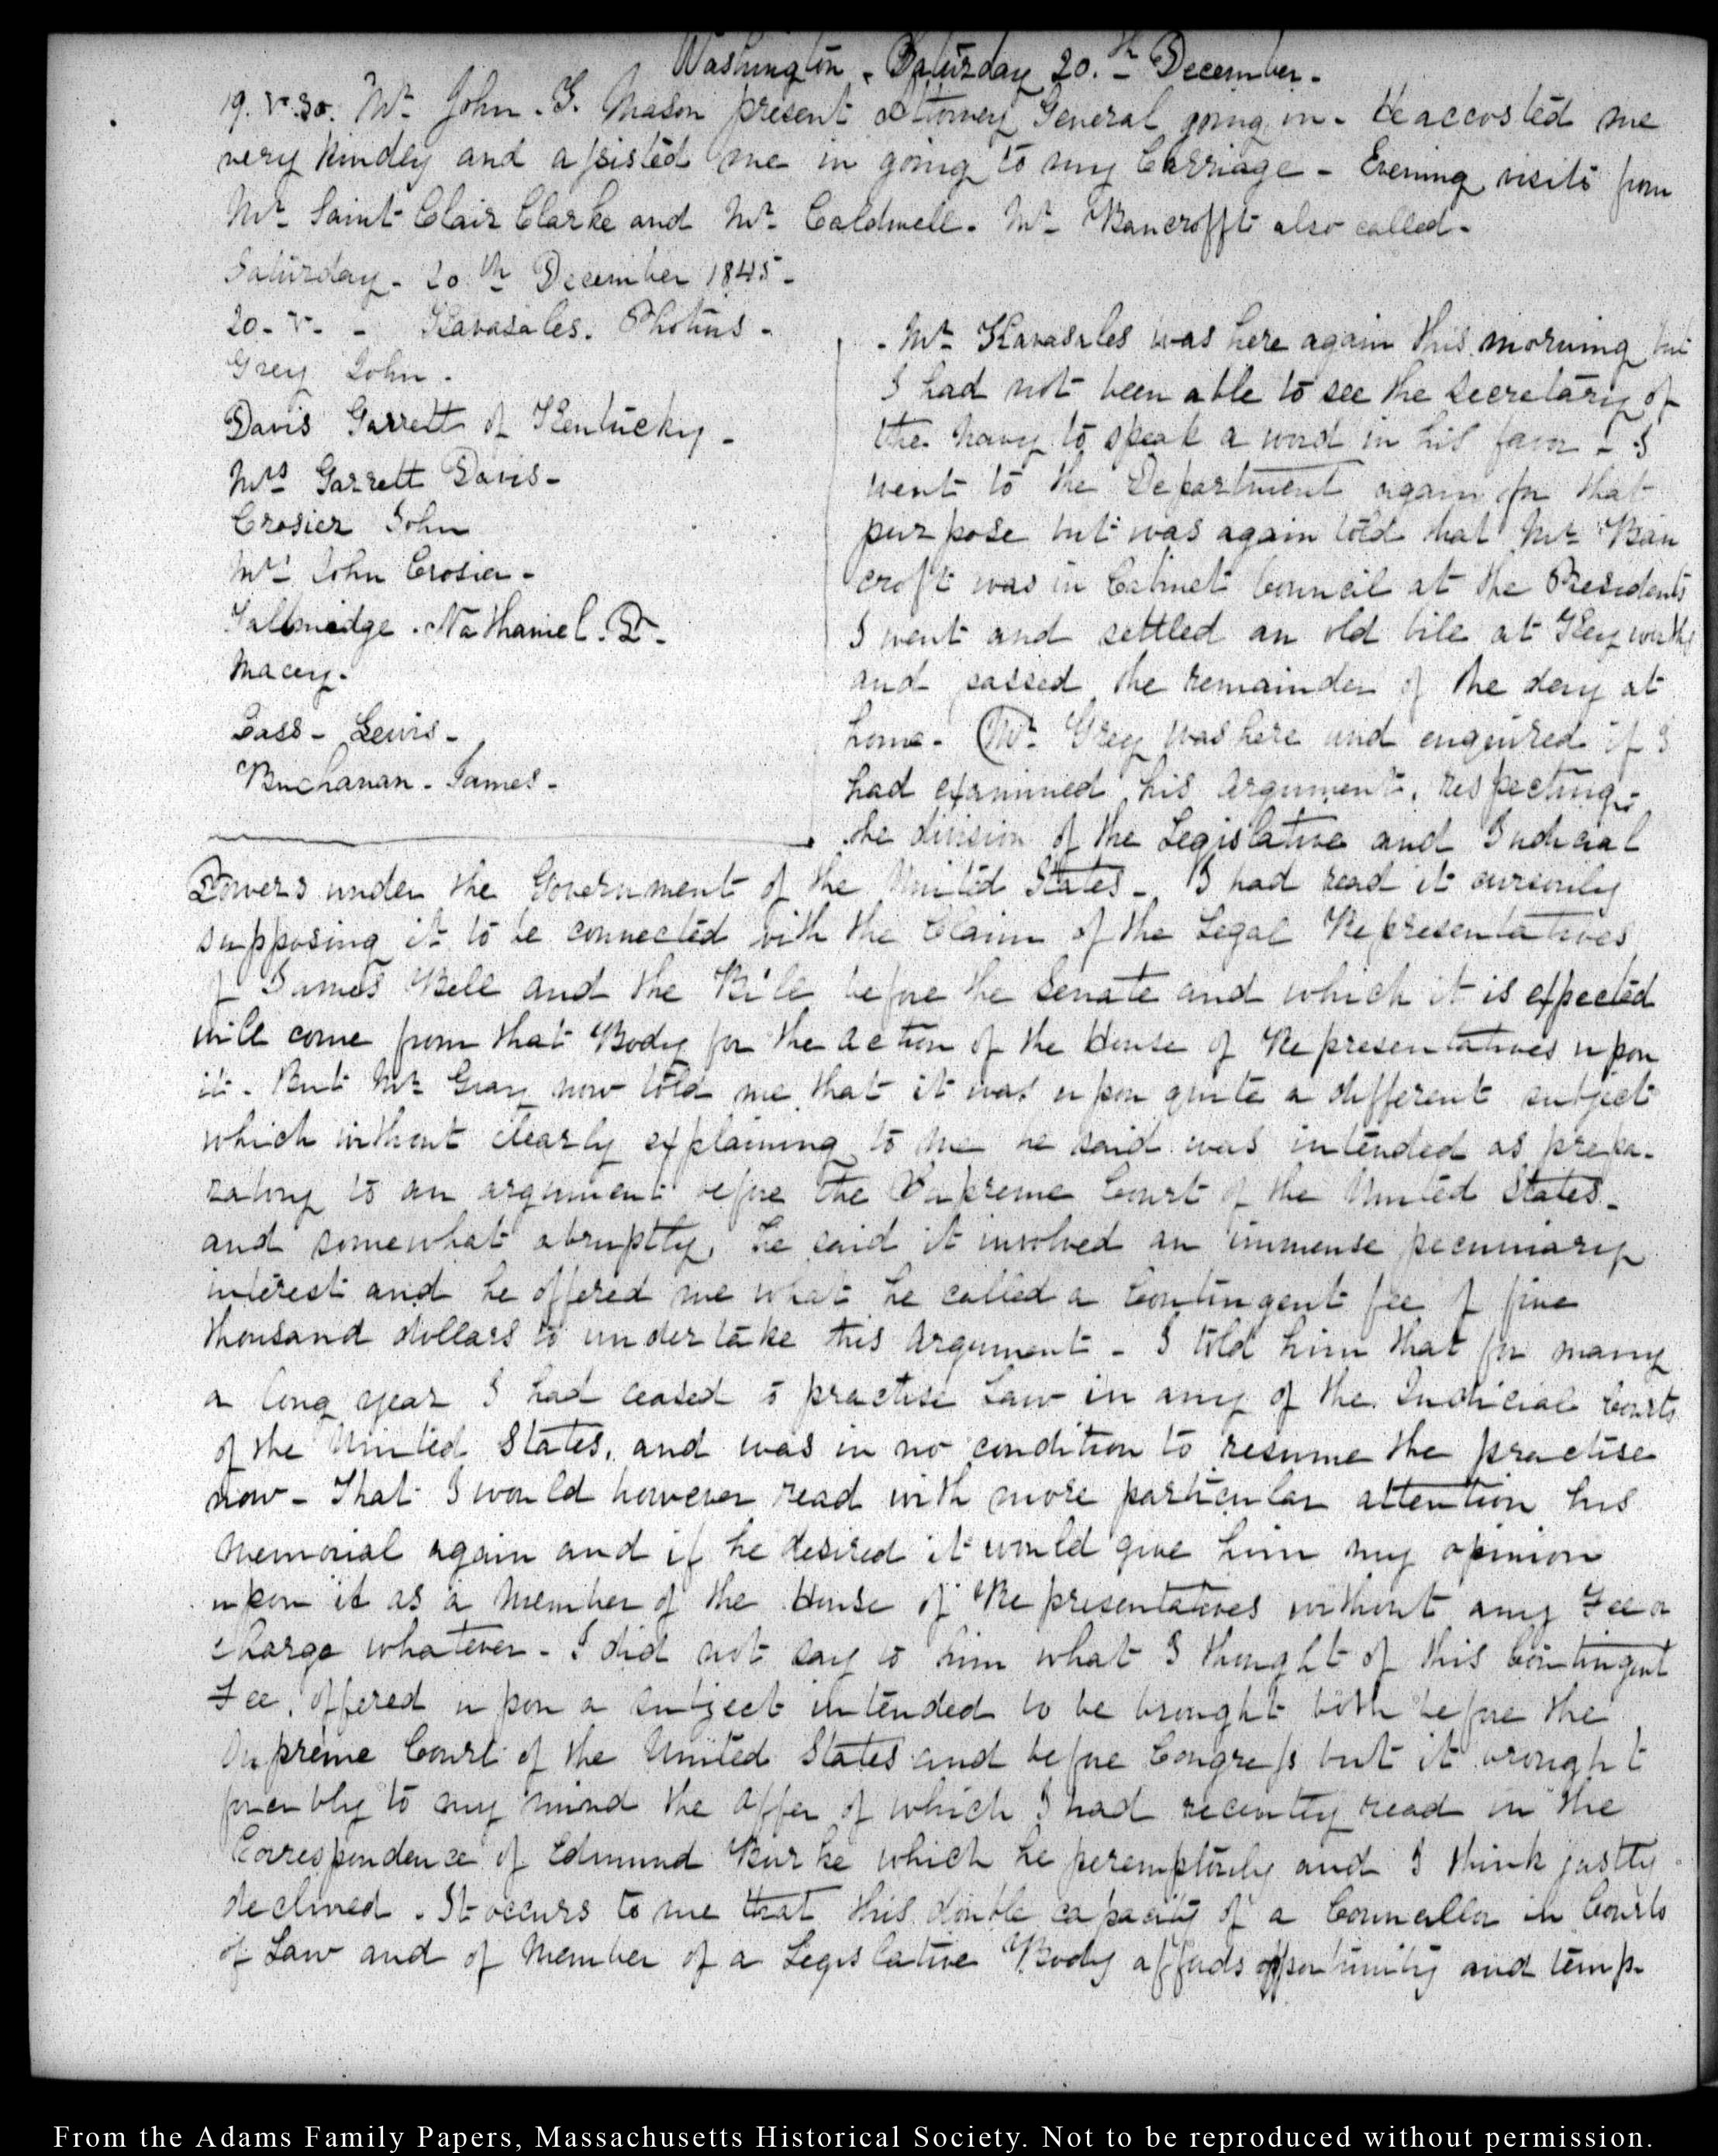 Washington. Saturday 20.th December.
19. V.30. Mr. John. Y. Mason present Attorney General going in. He accosted me
very kindly and assisted me in going to my Carriage. Evening visits from
Mr. Saint Clair Clarke and Mr. Caldwell. Mr. Bancrofft also called.
Saturday. 20th December 1845.
20. V. - Kavasales. Photius.
Grey John.
Davis Garrett of Kentucky.
Mrs Garrett Davis.
Crosier John
Mrs John Crosier.
Tallmadge. Nathaniel. P.
Macey.
Cass. Lewis.
Buchanan. James.
. Mr. Kavasales was here again this morning but
I had not been able to see the Secretary of
the Navy to speak a word in his favor. I
went to the Department again for that
purpose but was again told that Mr. Ban
croft was in Cabinet Council at the Presidents
I went and settled an old bill at Keyworths
and passed the remainder of the day at
home. Mr. Grey was here and enquired if I
had examined his argument, respecting
the division of the Legislative and Judicial
Powers under the Government of the United States. I had read it cursorily
supposing it to be connected with the Claim of the Legal Representatives
of James Bell and the Bill before the Senate and which it is expected
will come from that Body for the action of the House of Representatives upon
it. But Mr Gray now told me that it was upon quite a different subject
which without clearly explaining to me he said was intended as prepa-
ratory to an argument before the Supreme Court of the United States.
and somewhat abruptly, he said it involved an immense pecuniary
interest and he offered me what he called a Contingent fee of five
thousand dollars to undertake this Argument. I told him that for many
a long year I had ceased to practise Law in any of the Judicial Courts
of the United States, and was in no condition to resume the practise
now. That I would however read with more particular attention his
Memorial again and if he desired it would give him my opinion
upon it as a Member of the House of Representatives without any Fee or
charge whatever. I did not say to him what I thought of this Contingent
Fee, offered upon a subject intended to be brought both before the
Supreme Court of the United States and before Congress but it brought
forcibly to my mind the offer of which I had recently read in the
Correspondence of Edmund Burke which he peremptorily and I think justly
declined. It occurs to me that this double capacity of a Councellor in Courts
of Law and of Member of a Legislative Body affords opportunity and temp-
From the Adams Family Papers, Massachusetts Historical Society. Not to be reproduced without permission.